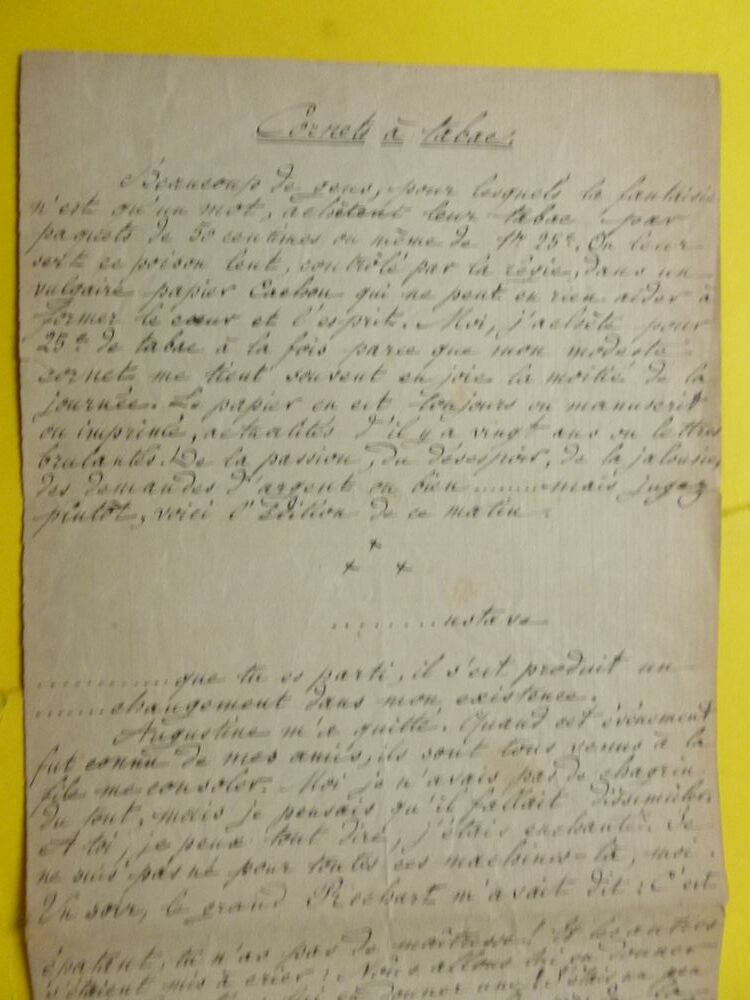 Cornets à tabac.
Beaucoup de gens, pour lesquels la fantaisie
n'est qu'un mot, achètent leur tabac par
paquets de 50 centimes ou même de 1fr 25c. On leur
sert ce poison lent, contrôlé par la régie, dans un
vulgaire papier Cachou qui ne peut en rien aider à
former le cœur et l'esprit. Moi, j'achète pour
25c de tabac à la fois parce que mon modeste
cornet me tient souvent en joie la moitié de la
journée. Le papier en est toujours ou manuscrit
ou imprimé, actualités d'il y a vingt ans ou lettres
brulantes! De la passion, du désespoir, de la jalousie,
des demandes d'argent ou bien ........ mais jugez
plutôt, voici l'édition de ce matin.
* * *
............ustave
............que tu es parti, il s'est produit un
......changement dans mon existence.
Augustine m'a quitté. Quand cet événement
fut connu de mes amis, ils sont tous venus à la
file me consoler. Moi je n'avais pas de chagrin
du tout, mais je pensais qu'il fallait dissimuler.
A toi, je peux tout dire, j'étais enchanté. Je
ne suis pas né pour toutes ces machines-là, moi.
Un soir, le grand Richart m'avait dit : C'est
épatant, tu n'as pas de maîtresse! Et les autres
s'étaient mis à crier : Nous allons lui en donner
donner une!